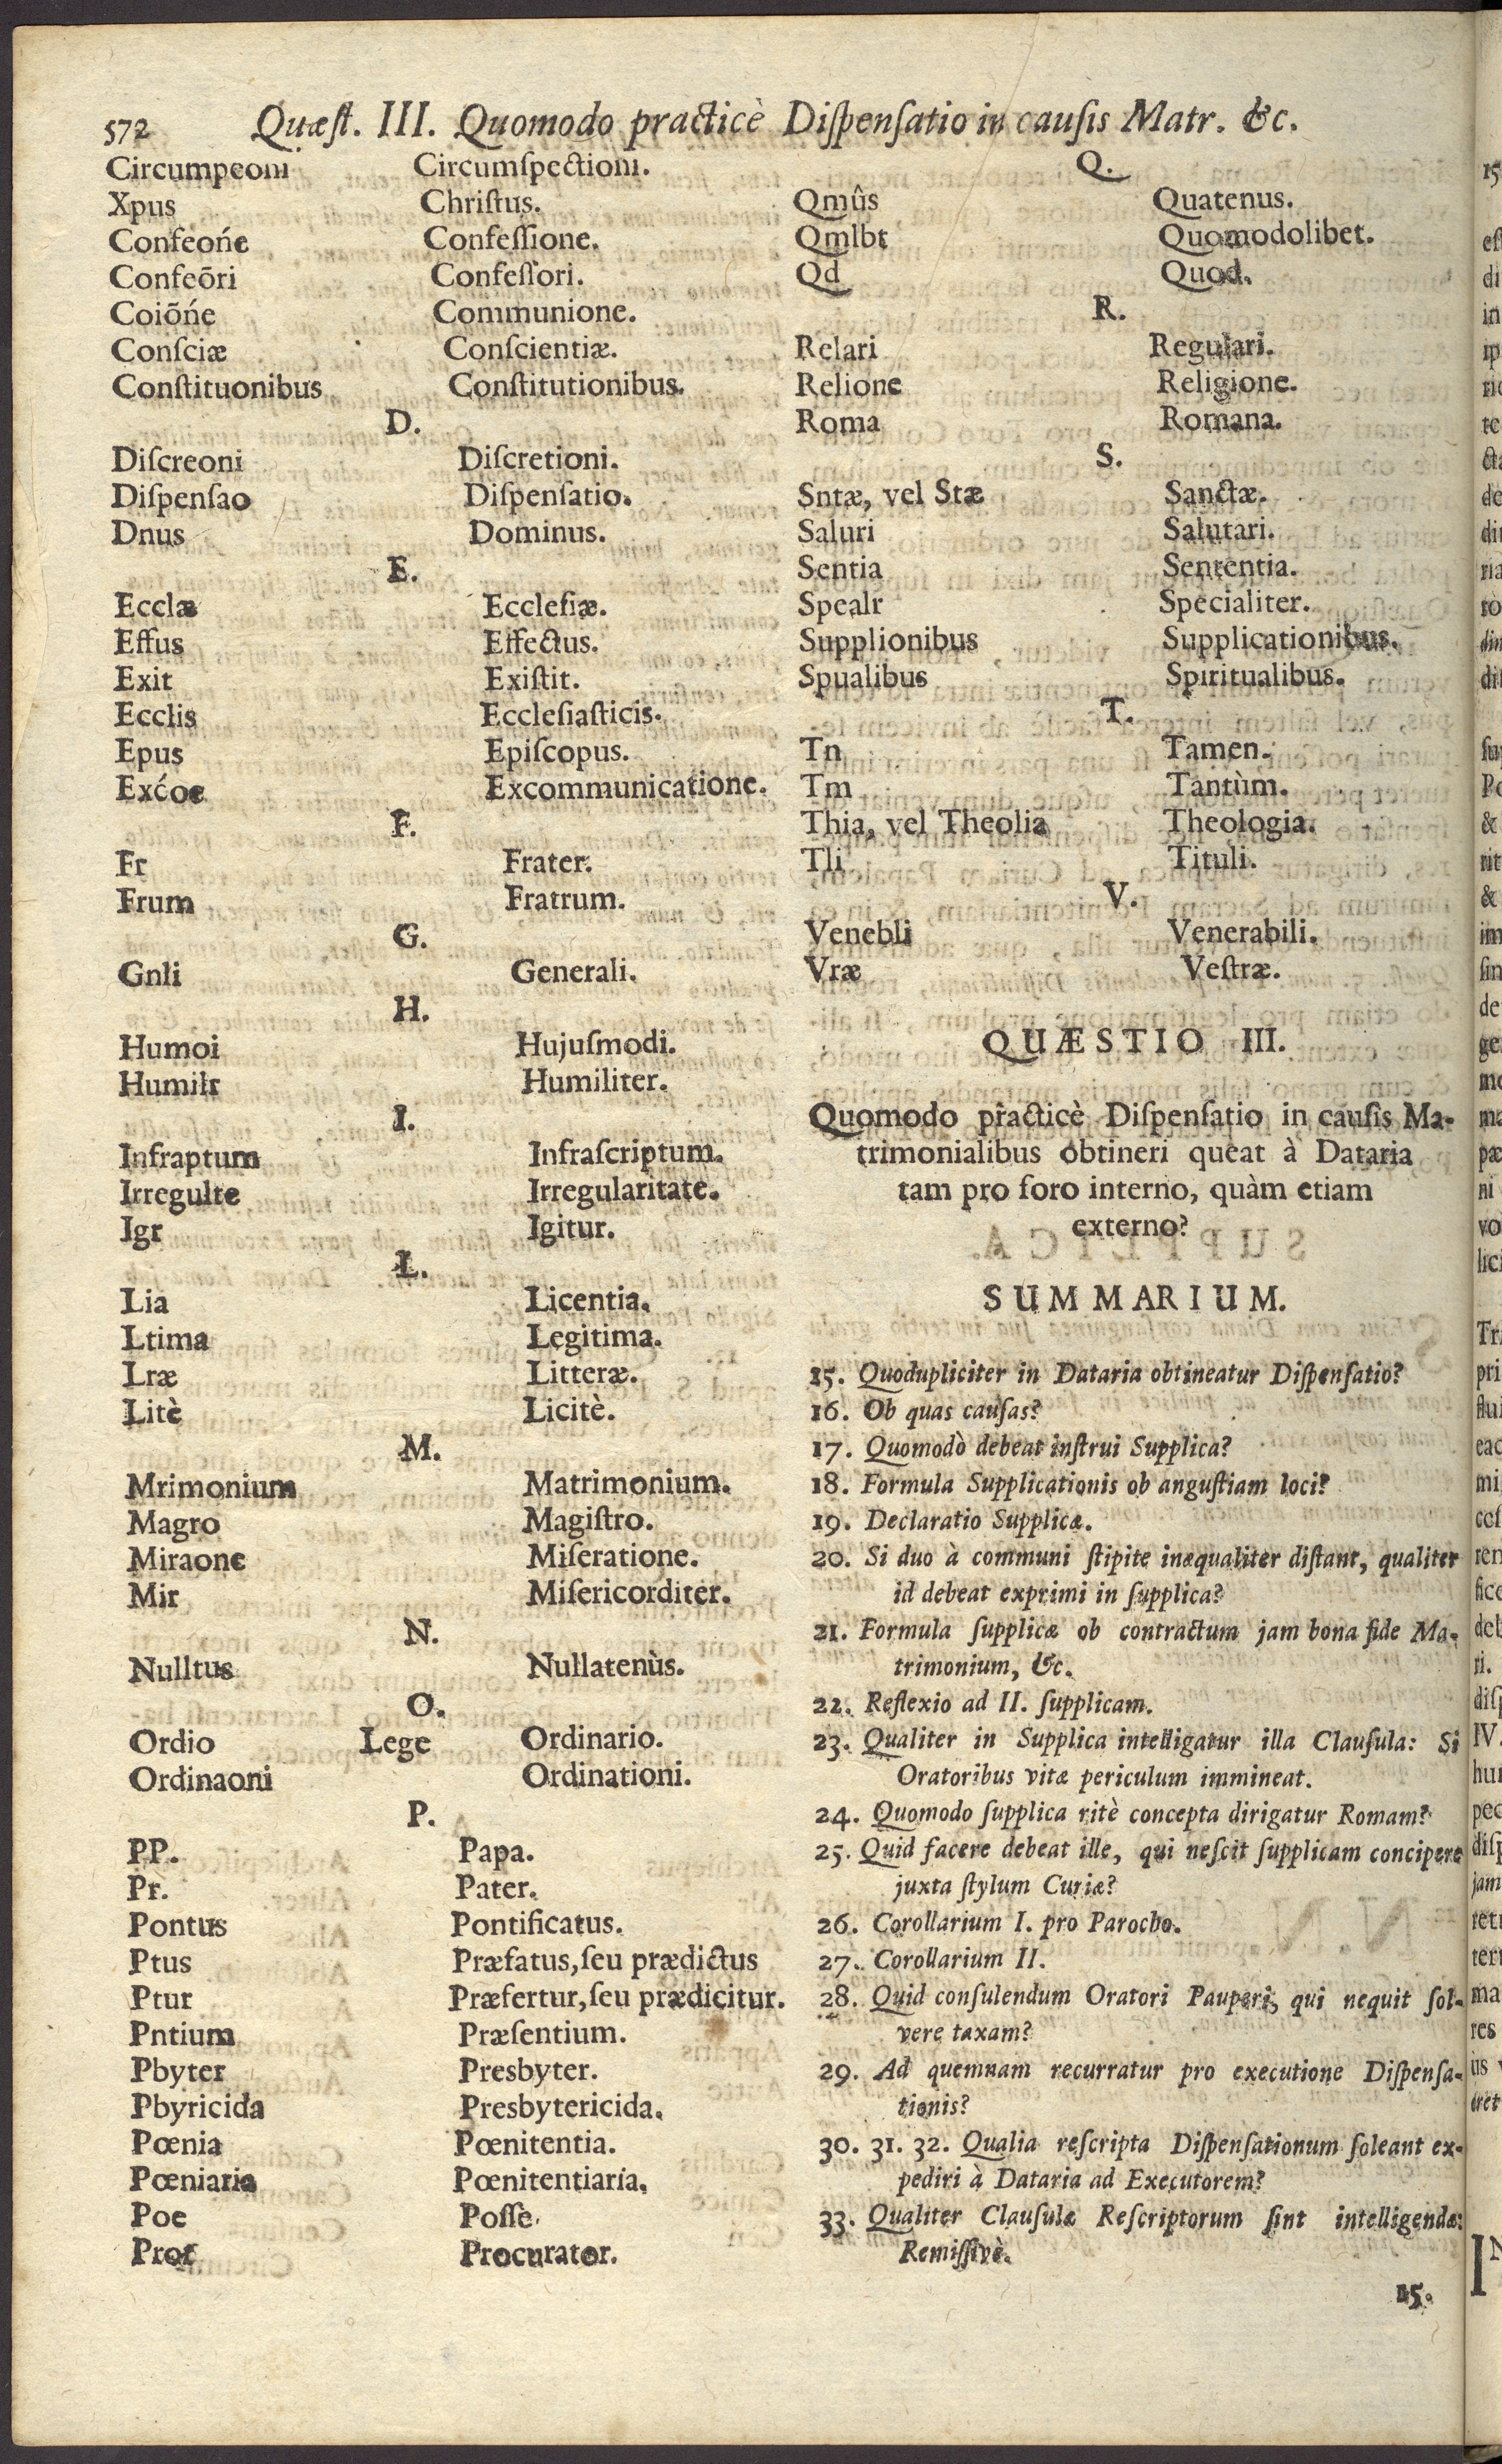 572 Quæſt. III. Quomodo practicè Diſpenſatio in cauſis Matr. &c.
Circumpeoni Circumſpectioni.
Xpus Chriſtus.
Confeońe Confeſſione.
Confeōri Confeſſori.
Coiōńe Communione.
Conſciæ Conſcientiæ.
Conſtituonibus Conſtitutionibus.
D.
Diſcreoni Diſcretioni.
Diſpenſao Diſpenſatio.
Dnus Dominus.
E.
Ecclæ Eccleſiæ.
Effus Effectus.
Exit Exiſtit.
Ecclis Eccleſiaſticis.
Epus Epiſcopus.
Exćoe Excommunicatione.
F.
Fr Frater.
Frum Fratrum.
G.
Gnli Generali.
H.
Humoi Hujuſmodi.
Humilr Humiliter.
I.
Infraptum Infraſcriptum.
Irregulte Irregularitate.
Igr Igitur.
L.
Lia Licentia.
Ltima Legitima.
Lræ Litteræ.
Litè Licitè.
M.
Mrimonium Matrimonium.
Magro Magiſtro.
Miraone Miſeratione.
Mir Miſericorditer.
N.
Nulltus Nullatenùs.
O.
Ordio Lege Ordinario.
Ordinaoni Ordinationi.
P.
PP. Papa.
Pr. Pater.
Pontus Pontificatus.
Ptus Præfatus, ſeu prædictus
Ptur Præfertur, ſeu prædicitur.
Pntium Præſentium.
Pbyter Presbyter.
Pbyricida Presbytericida.
Pœnia Pœnitentia.
Pœniaria Pœnitentiaria.
Poe Poſſe.
Pror Procurator.
Q.
Qmûs Quatenus.
Qmlbt Quomodolibet.
Qd Quod.
R.
Relari Regulari.
Relione Religione.
Roma Romana.
S.
Sntæ, vel Stæ Sanctæ.
Saluri Salutari.
Sentia Sententia.
Spealr Specialiter.
Supplionibus Supplicationibus.
Spualibus Spiritualibus.
T.
Tn Tamen.
Tm Tantùm.
Thia, vel Theolia Theologia.
Tli Tituli.
V.
Venebli Venerabili.
Vræ Veſtræ.
QUÆSTIO III.
Quomodo practicè Diſpenſatio in cauſis Ma-
trimonialibus obtineri queat à Dataria
tam pro foro interno, quàm etiam
externo?
SUMMARIUM.
15. Quodupliciter in Dataria obtineatur Diſpenſatio?
16. Ob quas cauſas?
17. Quomodò debeat inſtrui Supplica?
18. Formula Supplicationis ob anguſtiam loci?
19. Declaratio Supplicæ.
20. Si duo à communi ſtipite inæqualiter diſtant, qualiter
id debeat exprimi in ſupplica?
21. Formula ſupplicæ ob contractum jam bona fide Ma-
trimonium, &c.
22. Reflexio ad II. ſupplicam.
23. Qualiter in Supplica intelligatur illa Clauſula: Si
Oratoribus vitæ periculum immineat.
24. Quomodo ſupplica ritè concepta dirigatur Romam?
25. Quid facere debeat ille, qui neſcit ſupplicam concipere
juxta ſtylum Curiæ?
26. Corollarium I. pro Parocho.
27. Corollarium II.
28. Quid conſulendum Oratori Pauperi, qui nequit ſol-
vere taxam?
29. Ad quemnam recurratur pro executione Diſpenſa-
tionis?
30. 31. 32. Qualia reſcripta Diſpenſationum ſoleant ex-
pediri à Dataria ad Executorem?
33. Qualiter Clauſulæ Reſcriptorum ſint intelligendæ:
Remiſſivè.
15.